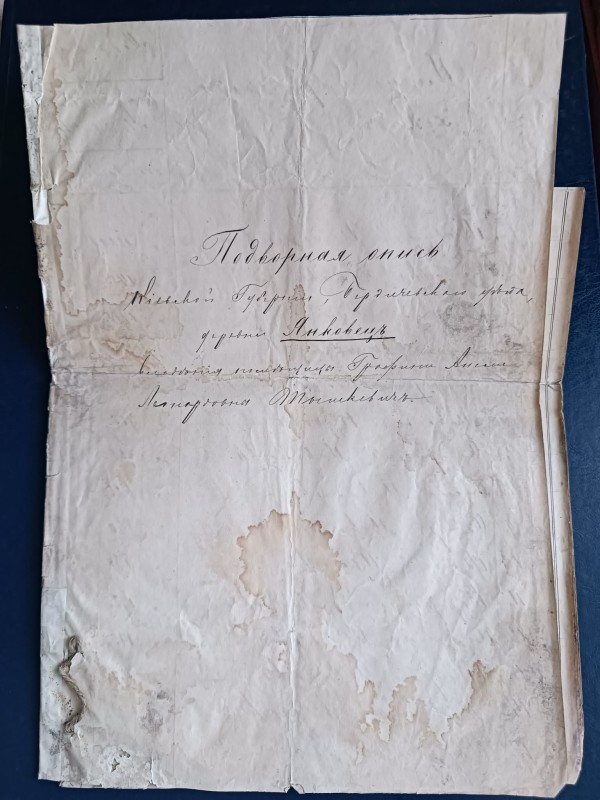 Подворная опись
Кіевской Губерніи, Бердичевского уѣзда,
деревни Янковецъ
помѣщицы Графини
Леонардовна Тышкевичъ.